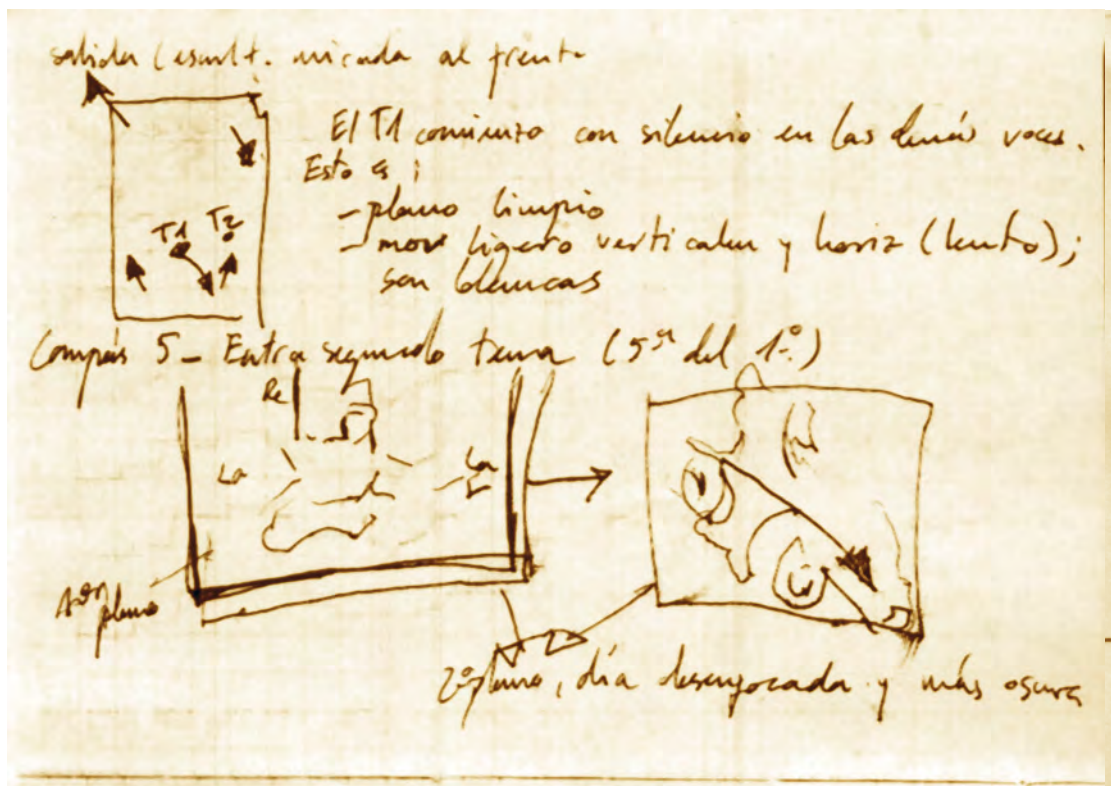 salida (escult. mirada al frente
El T1 comienza con silencio en las demás voces.
Esto es;
- plano limpio
- mov ligero vertical y horiz (lento);
son blancas
T1 T2
Compás 5 - Entra segundo tema (5ª del 1º)
Re
La La
1er plano
2º plano, día desenfocada y más oscura